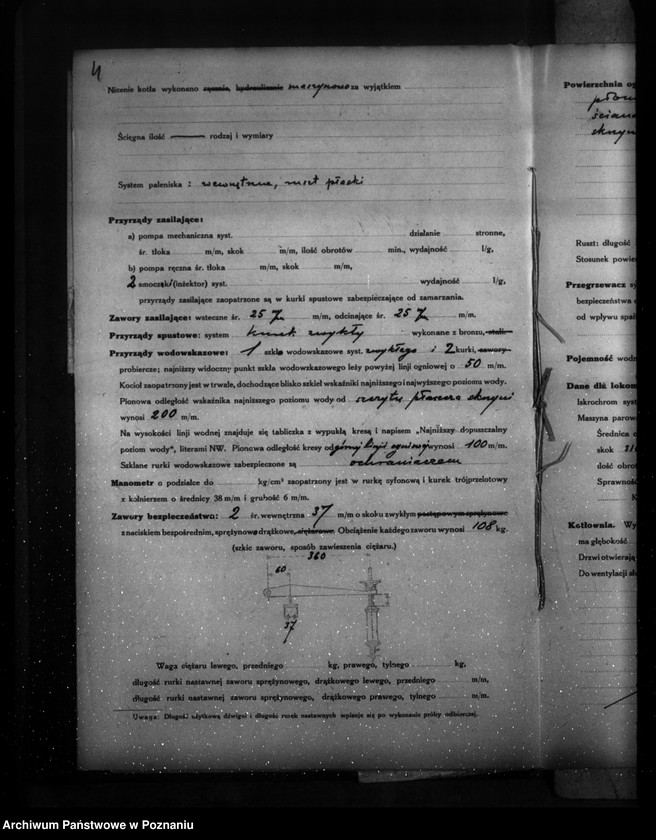 4
Nicenie kotła wykonano ręcznie, hydraulicznie maszynowo za wyjątkiem
Ścięgna ilość rodzaj i wymiary
System paleniska : wewnętrzne, ruszt płaski
Przyrządy zasilające:
a) pompa mechaniczna syst. działanie stronne,
śr. tłoka m/m, skok m/m, ilość obrotów min., wydajność l/g,
b) pompa ręczna śr. tłoka m/m, skok m/m,
2 smoczek (inżektor) syst. wydajność l/g,
przyrządy zasilające zaopatrzone są w kurki spustowe zabezpieczające od zamarzania.
Zawory zasilające: wsteczne śr. 25 m/m, odcinające śr. 25 m/m.
Przyrządy spustowe: system kurek zwykły wykonane z bronzu, stali.
Przyrządy wodowskazowe: 1 szkła wodowskazowe syst. zwykłego i 2 kurki, zawory
probiercze; najniższy widoczny punkt szkła wodowskazowego leży powyżej linji ogniowej o 50 m/m.
Kocioł zaopatrzony jest w trwałe, dochodzące blisko szkieł wskaźniki najniższego i najwyższego poziomu wody.
Pionowa odległość wskaźnika najniższego poziomu wody od szczytu płaszcza skrzyni
wynosi 200 m/m.
Na wysokości linji wodnej znajduje się tabliczka z wypukłą kresą i napisem „Najniższy dopuszczalny
poziom wody", literami NW. Pionowa odległość kresy od górnej linji ogniowej wynosi 100 m/m.
Szklane rurki wodowskazowe zabezpieczone są ochraniaczem
Manometr o podziałce do kg/cm² zaopatrzony jest w rurkę syfonową i kurek trójprzelotowy
z kołnierzem o średnicy 38 m/m i grubość 6 m/m.
Zawory bezpieczeństwa: 2 śr. wewnętrzna 37 m/m o skoku zwykłym postępowym sprężynowe
z naciskiem bezpośrednim, sprężynowe drążkowe, ciężarowe. Obciążenie każdego zaworu wynosi 108 kg.
(szkic zaworu, sposób zawieszenia ciężaru.)
360
60
37
Waga ciężaru lewego, przedniego kg, prawego, tylnego kg,
długość rurki nastawnej zaworu sprężynowego, drążkowego lewego, przedniego m/m,
długość rurki nastawnej zaworu sprężynowego, drążkowego prawego, tylnego m/m.
Uwaga: Długość użytkową dźwigni i długości rurek nastawnych wpisuje się po wykonaniu próby odbiorczej.
Powierzchnia og
Ruszt: długość
Stosunek powie
Przegrzewacz s
bezpieczeństwa
od wpływu spal
Pojemność wodn
Dane dla lokom
Iskrochron syst
Maszyna parow
Średnica c
skok
ilość obrot
Sprawnoś
K
Kotłownia. Wy
ma głębokość
Drzwi otwierają
Do wentylacji sł
Archiwum Państwowe w Poznaniu